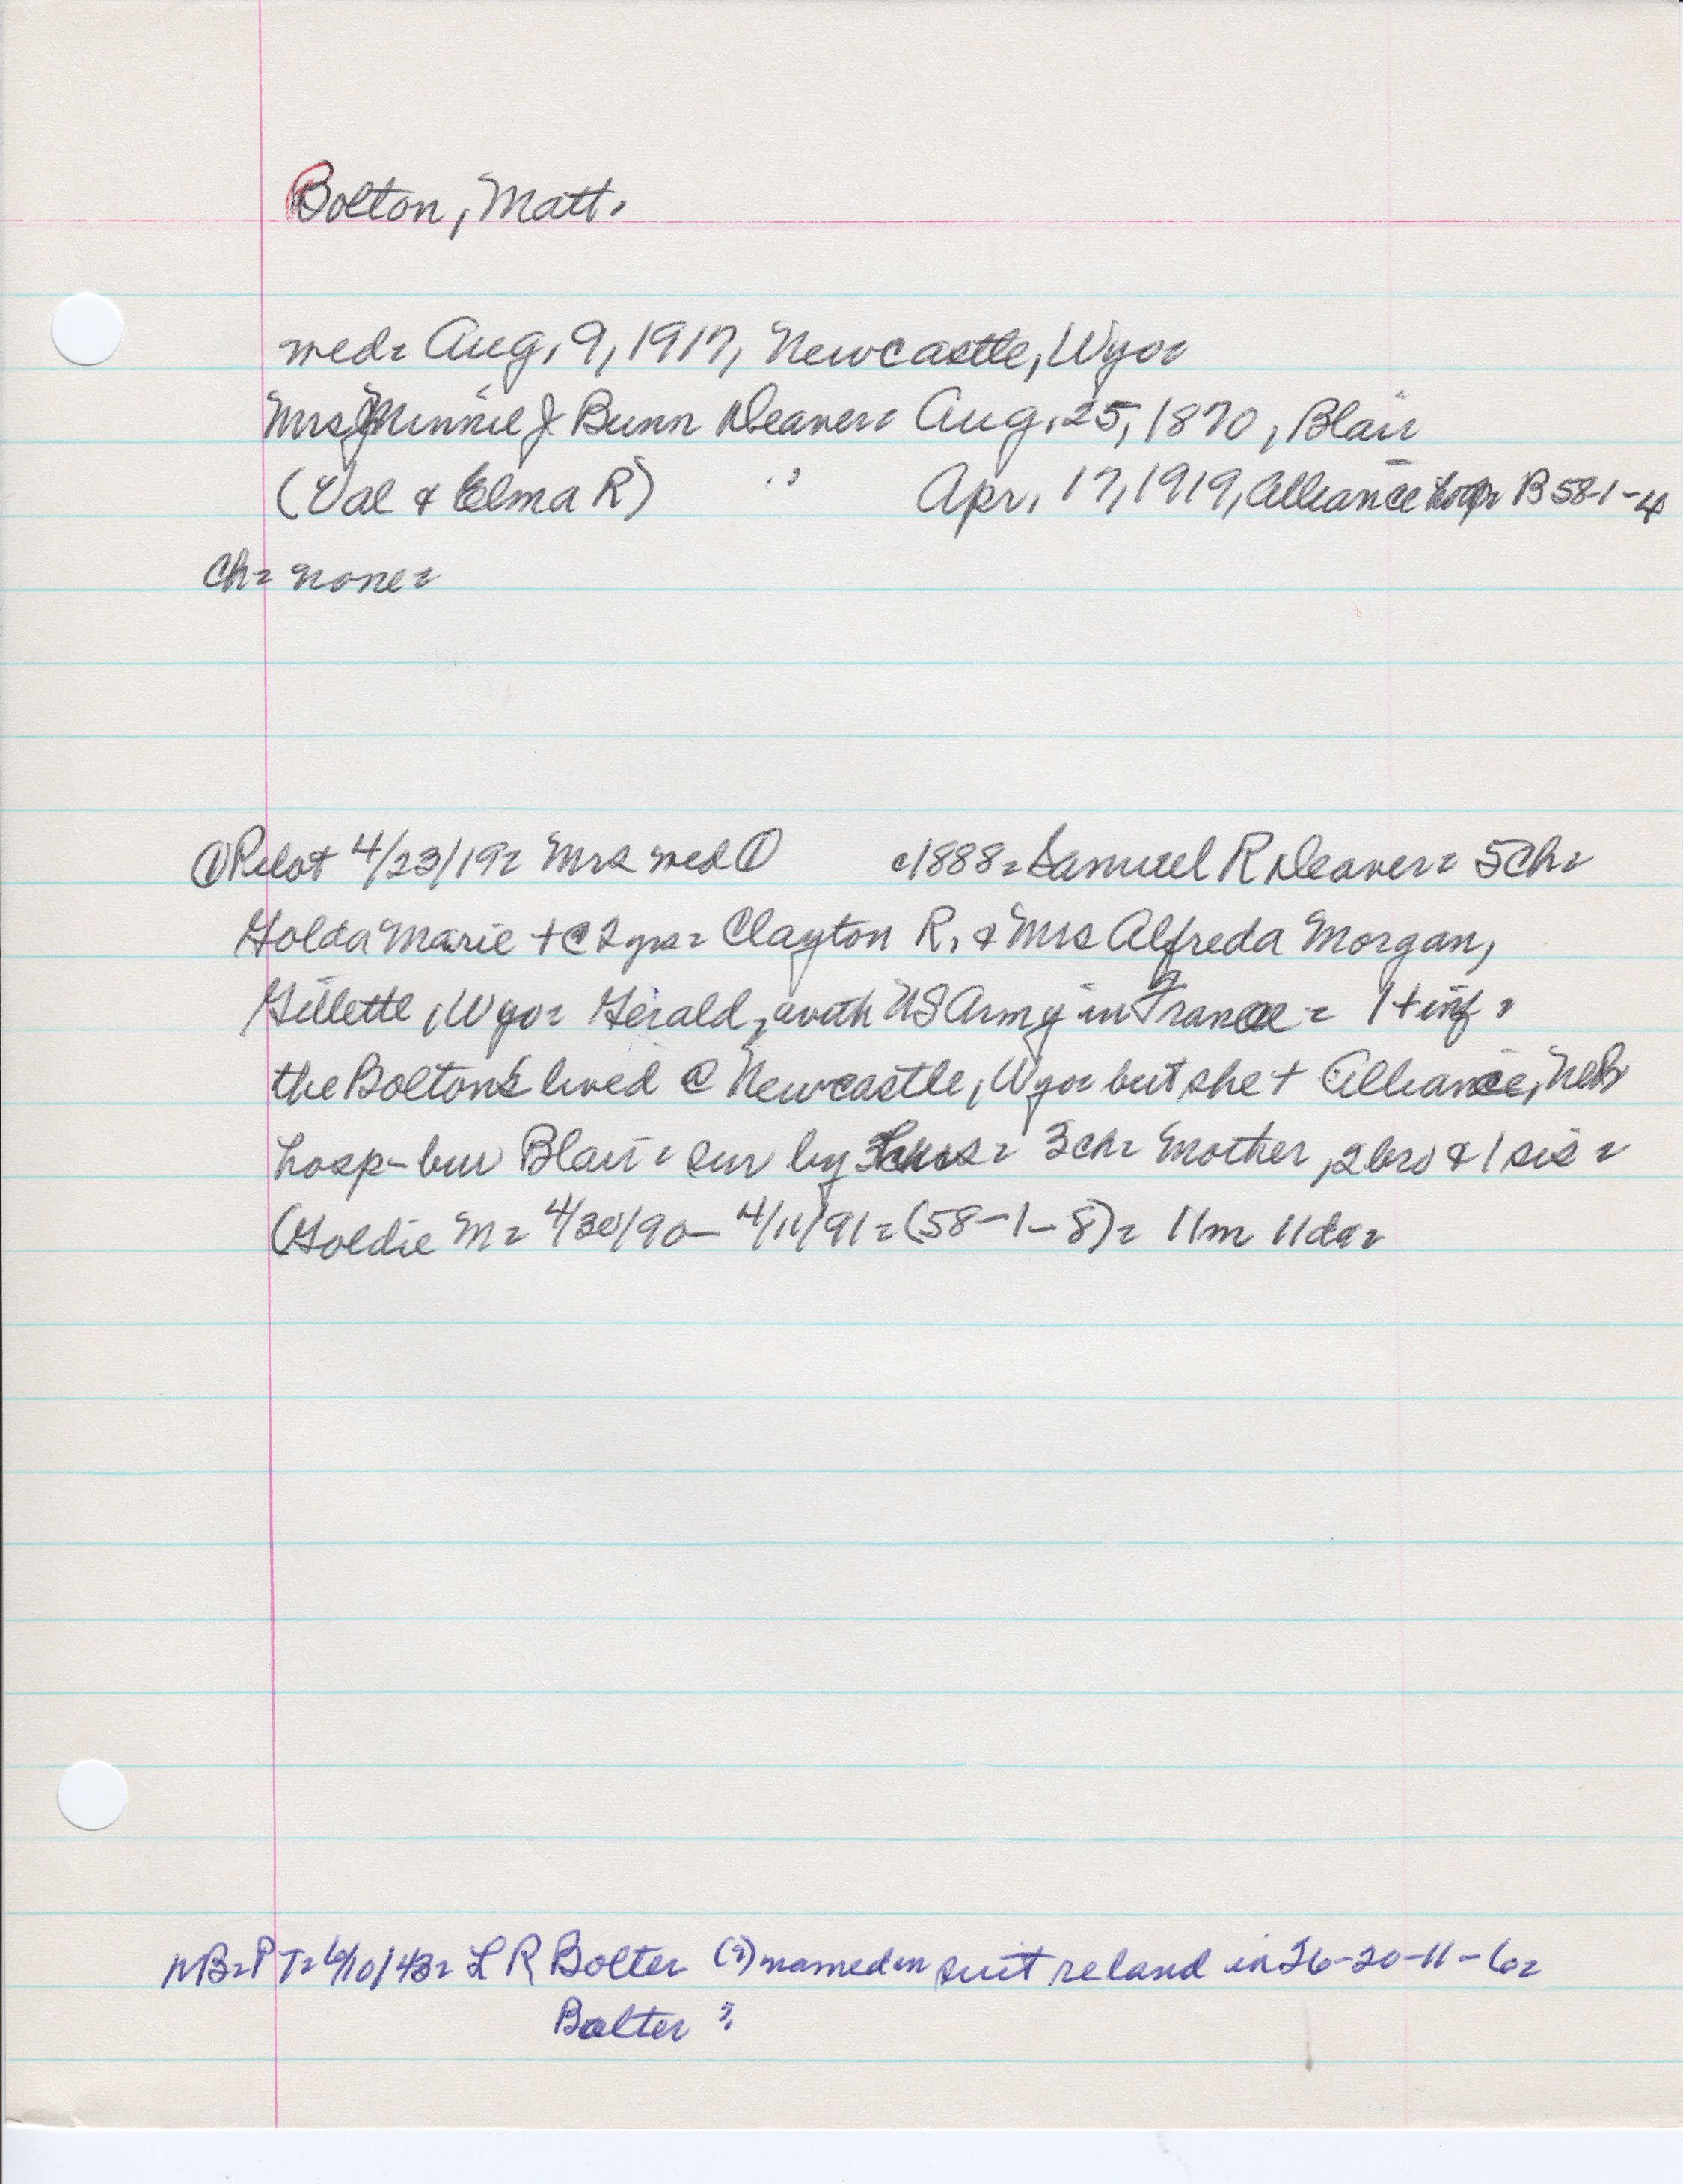 Bolton, Matt.
wed= Aug. 9, 1917, Newcastle, Wyo=
Mrs Minnie J Bunn Deaver= Aug. 25, 1870, Blair
(Val & Elma R) " Apr. 17, 1919, Alliance hosp= B 58-1-4
Ch= none=
① Pilot 4/23/19= Mrs wed ① c1888= Samuel R Deaver= 5 Ch=
Golda Marie + @ 2 yrs= Clayton R. & Mrs Alfreda Morgan,
Gillette, Wyo= Gerald, with US Army in France= 1 + inf=
the Boltons lived @ Newcastle, Wyo= but she + Alliance, Neb
hosp- bur Blair= sur by hus= 3 ch= Mother, 2 bro & 1 sis=
(Goldie M= 4/30/90- 4/11/91= (58-1-8)= 11m 11da=
NB= PT= 6/10/43= L R Bolter (?) named in suit re land in 26-20-11-6=
Balter ?